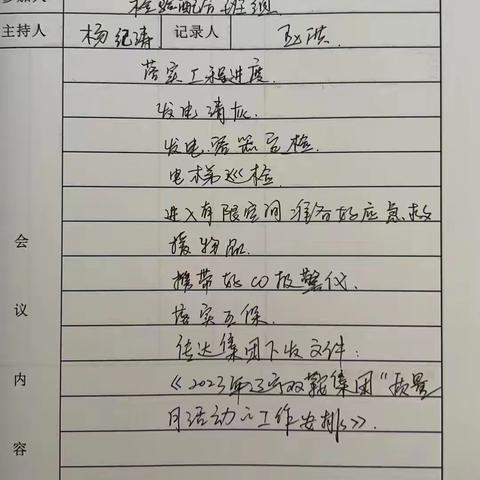 参加人 检验配方班组
主持人 杨纪涛 记录人
落实工程进度.
发电清灰.
发电
电梯巡检.
进入有限空间准备好应急救
援物品.
携带好CO报警仪.
落实五保.
会议内容
传达集团下发文件:
《2023年 集团"质量
月活动"工作安排》.